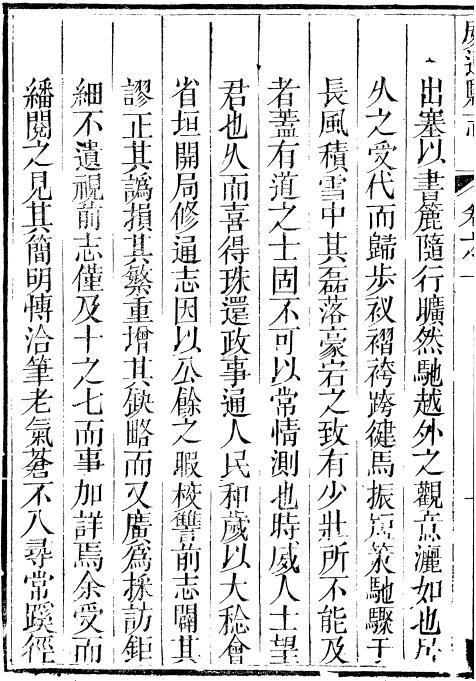 出塞以書簏隨行曠然馳越外之觀意灑如也居
久之受代而歸步衩褶袴跨健馬振短策馳驟于
長風積雪中其磊落豪宕之致有少壯所不能及
者蓋有道之士固不可以常情測也時威人士望
君也久而喜得珠還政事通人民和歲以大稔會
省垣開局修通志因以公餘之暇校讐前志闢其
謬正其譌損其繁重增其缺略而又廣爲採訪鉅
細不遺視前志僅及十之七而事加詳焉余受而
繙閱之見其簡明愽洽筆老氣蒼不入尋常蹊徑